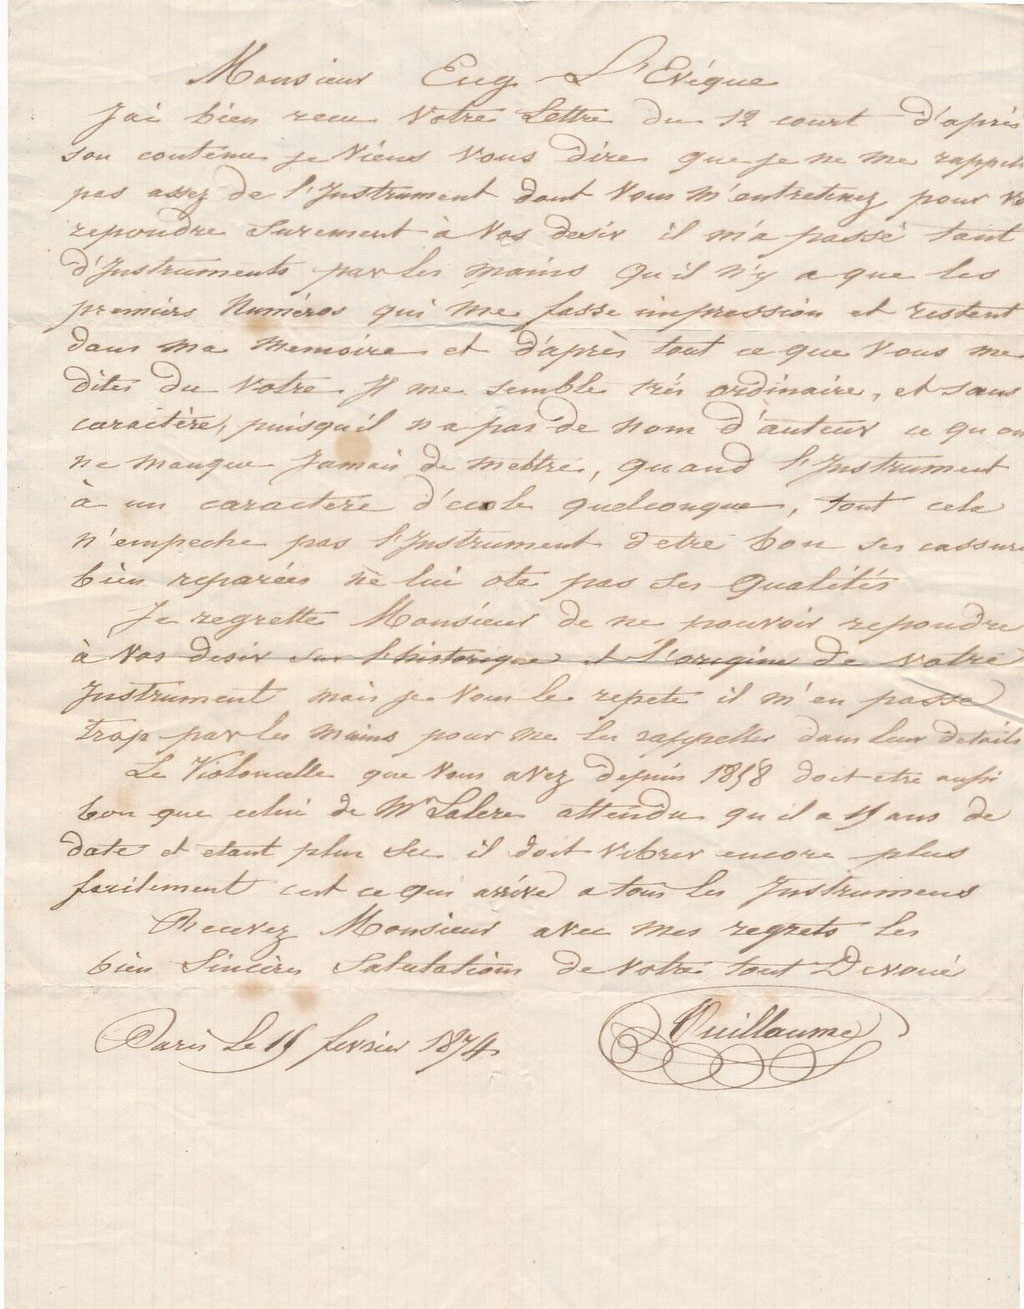 Monsieur Eug L'Evéque
J'ai bien recu Votre Lettre du 12 court d'après
son contenu je Viens Vous dire que je ne me rappel
pas assez de l'Instrument dont Vous m'entretenez pour Vo
repondre Surement à Vos desir il m'a passé tant
d'Instruments par les mains qu'il n'y a que les
premiers Numéros qui me fasse impression et restent
dans ma memoire et d'après tout ce que Vous me
dites du Votre Il me semble très ordinaire, et sans
caractère, puisqu'il n'a pas de nom d'auteur ce qu'on
ne manque Jamais de mettre, quand l'Instrument
à un caractere d'ecole quelconque, tout cela
n'empeche pas l'Instrument d'etre bon ses cassure
bien reparées ne lui ote pas ses qualités
Je regrette Monsieur de ne pouvoir repondre
à Vos desir sur l'historique et l'origine de Votre
Instrument mais je Vous le repete il m'en passe
trop par les mains pour me les rappeller dans leur details
Le Violoncelle que Vous avez depuis 1858 doit etre aussi
bon que celui de Mr attendu qu'il a 15 ans de
date et etant plus Sec il doit vibrer encore plus
facilement c'est ce qui arrive a tous les Instrumens
Recevez Monsieur avec mes regrets les
bien Sincères Salutations de Votre tout Devoué
Paris Le 15 fevrier 1874 Vuillaume